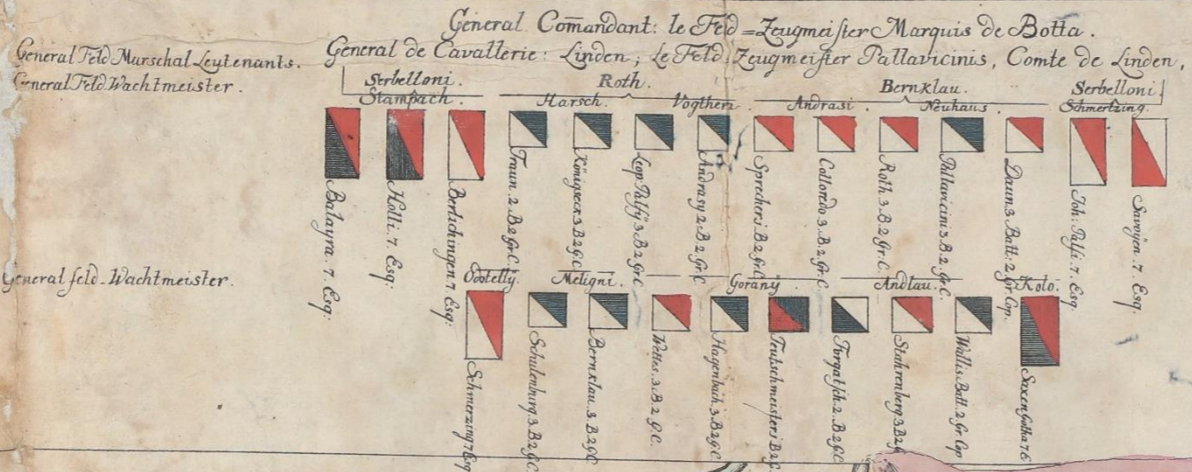 General Comandant: le Feld=Zeugmeister Marquis de Botta.
General Feld Marschal Leytenants. General de Cavallerie: Linden; Le Feld=Zeugmeister Pallavicinis, Comte de Linden,
Serbelloni. Roth. Bernklau. Serbelloni
General Feld Wachtmeister. Stampach. Harsch. Vogthern Andrasi. Neuhaus. Schmertzing.
Balayra. 7 Esq:
Holli. 7. Esq.
Berlichingen 7 Esq:
Traun. 2. B. 2 Gr. C.
Königseck 3 B 2 G C
Leop. Palfy 3 B 2 Gr. C
Andrasy 2. B. 2 Gr. C
Sprecheri B. 2 Gr. C
Colloredo 3. B. 2. Gr. C.
Roth 3. B. 2. Gr. C.
Pallavicini 3. B. 2 Gr. C.
Daun 3 Batt. 2 Gr. Cop.
Joh: Palfi. 7. Esq.
Savoyen. 7 Esq.
General feld-Wachtmeister. Odotelly. Meligni. Gorany Andlau. Kolo.
Schmerzing 7 Esq
Schulenburg. 3 B 2 G C
Bernklau. 3 B 2 G C
Vettes. 3. B. 2. G. C.
Hagenbach. 3 B 2 G C
Teutschmeisteri B 2 G.
Forgatsch. 2. B 2 G C.
Stahrenberg 3 B 2 G
Wallis. Batt. 2 Gr. Cop
Saxengotha 7 E